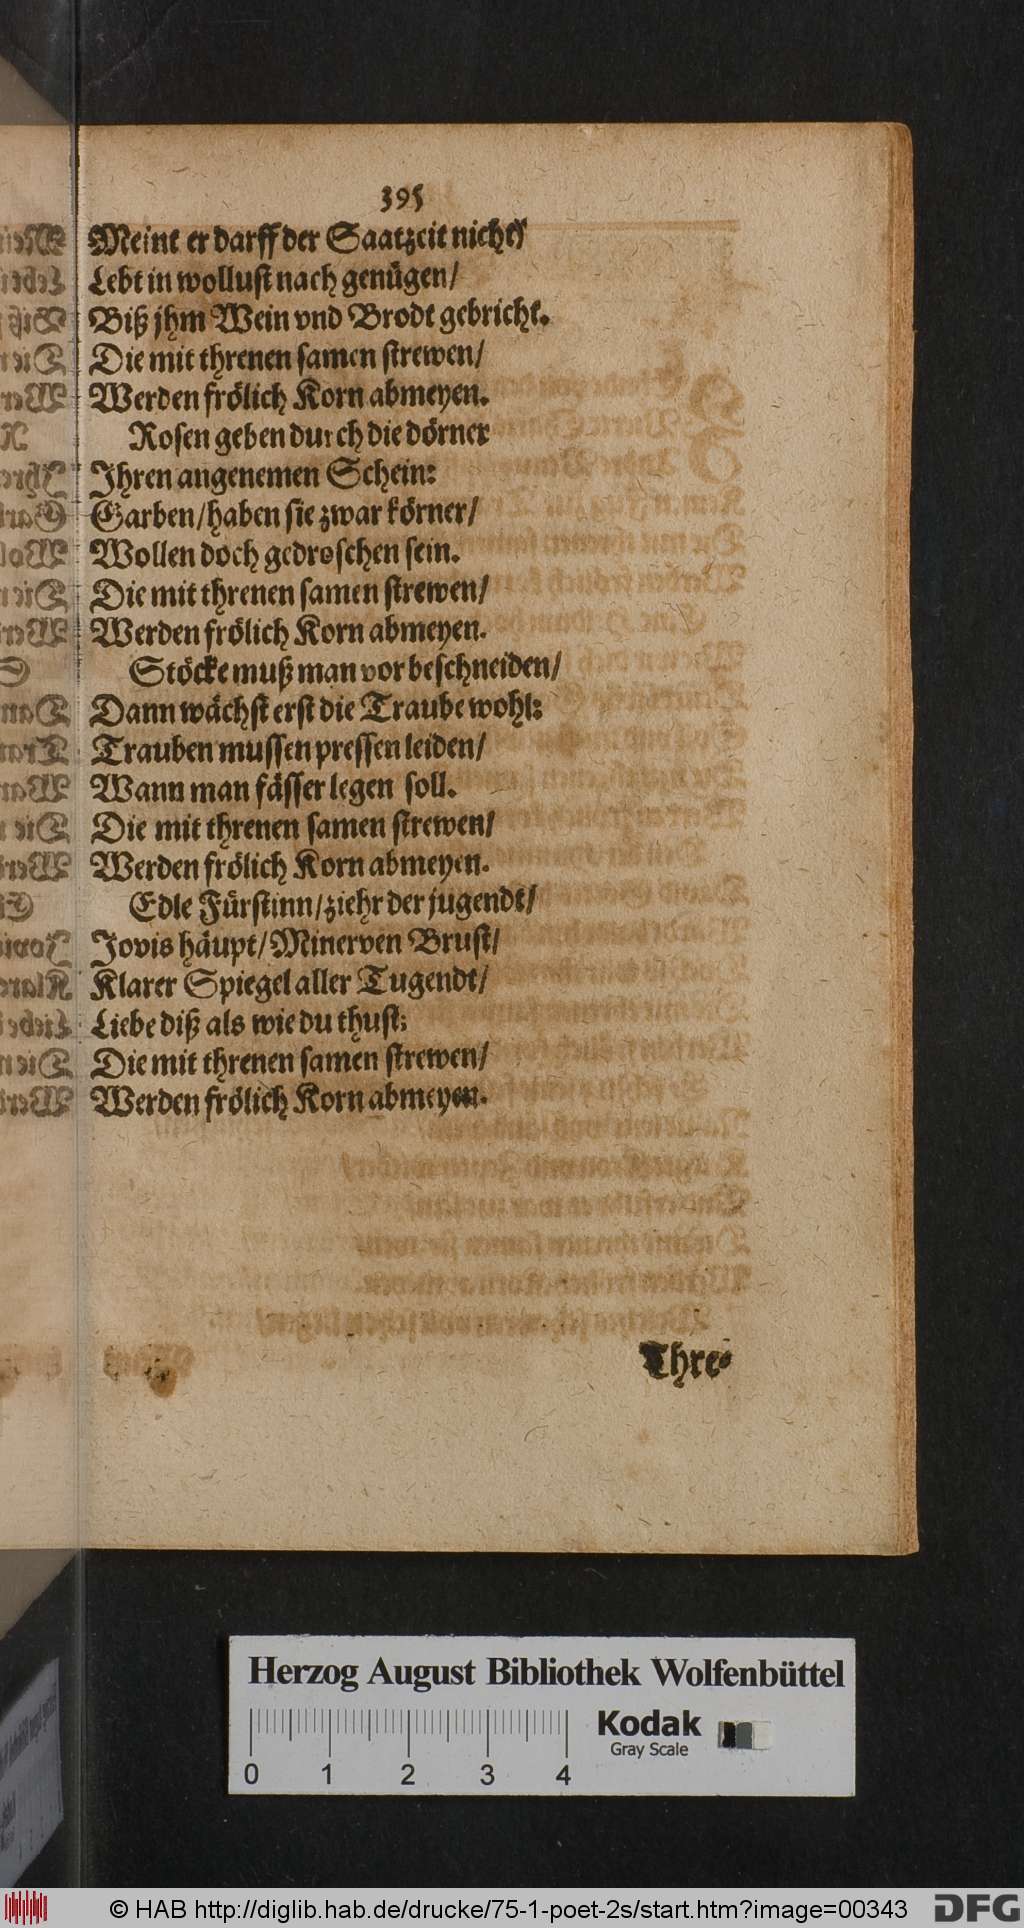 395
Meint er darff der Saatzeit nicht/
Lebt in wollust nach genügen/
Biß jhm Wein vnd Brodt gebricht.
Die mit threnen samen strewen/
Werden frölich Korn abmeyen.
Rosen geben durch die dörner
Jhren angenemen Schein:
Garben/haben sie zwar körner/
Wollen doch gedroschen sein.
Die mit threnen samen strewen/
Werden frölich Korn abmeyen.
Stöcke muß man vor beschneiden/
Dann wächst erst die Traube wohl:
Trauben mussen pressen leiden/
Wann man fässer legen soll.
Die mit threnen samen strewen/
Werden frölich Korn abmeyen.
Edle Fürstinn/ziehr der jugendt/
Jovis häupt/Minerven Brust/
Klarer Spiegel aller Tugendt/
Liebe diß als wie du thust:
Die mit threnen samen strewen/
Werden frölich Korn abmeyen.
Thre-
Herzog August Bibliothek Wolfenbüttel
Kodak
Gray Scale
0 1 2 3 4
© HAB http://diglib.hab.de/drucke/75-1-poet-2s/start.htm?image=00343
DFG